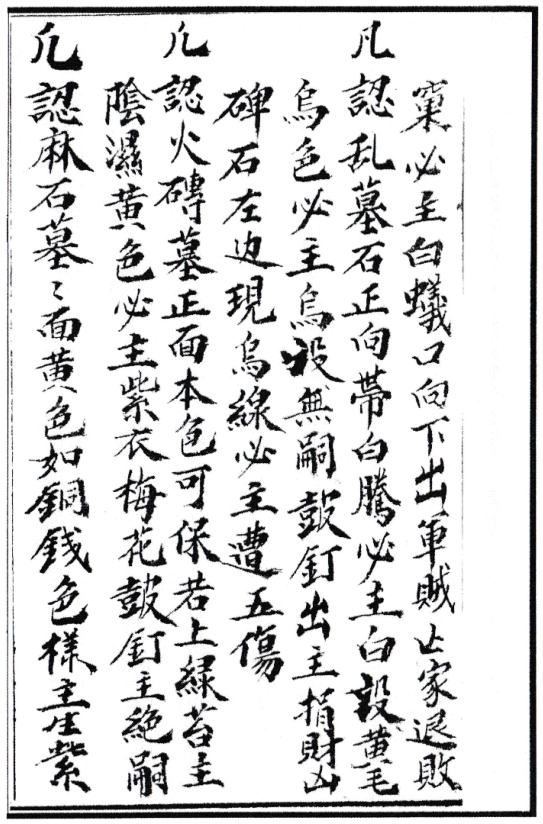 窠必主白蟻口向下出軍賊亡家退敗
凡認乱墓石正向帶白騰必主白設黃毛
烏色必主烏設無嗣鼓釘出主損財山
碑石左边現烏線必主遭五傷
凡認火磚墓正面本色可保若上緑苔主
陰濕黃色必主紫衣梅花鼓釘主絶嗣
凡認麻石墓〻面黃色如銅錢色樣主生紫